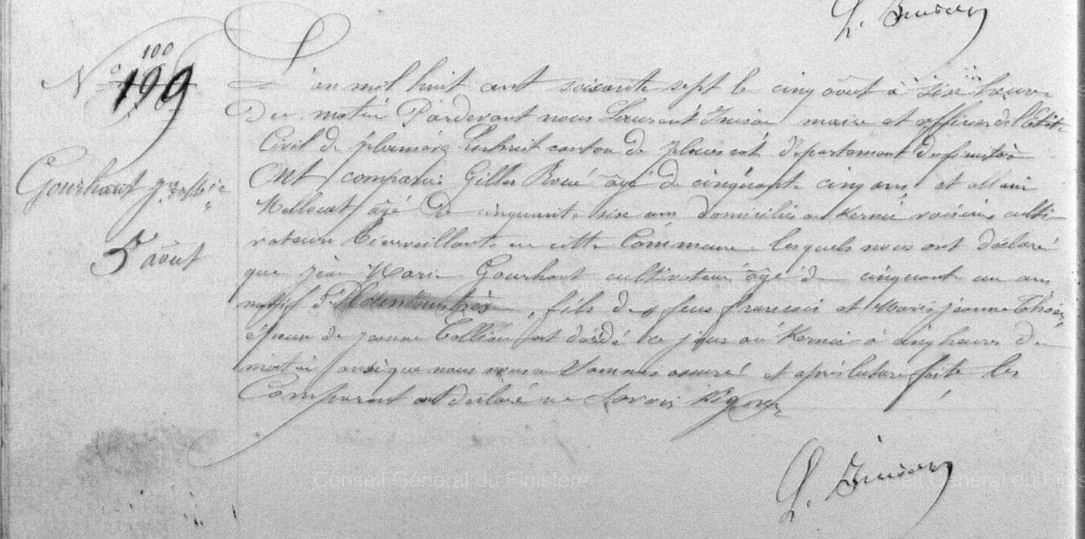 L. 
N° 100
199
Gourhant J. Marie
5 août
L'an mil huit cent soixante sept le cinq août à six heures
Du matin Pardevant nous Laurent maire et officier de l'État
Civil de canton de département du finistère
Ont comparu Gilles Roué âgé de cinquante cinq ans et allain
âgé de cinquante six ans domiciliés au Kernié voisins culti
vateurs bienveillants en cette Commune lesquels nous ont déclaré
que jean Marie Gourhant cultivateur âgé de cinquante un ans
natif de fils de feus francois et Marie jeanne
époux de jeanne est décédé ce jour au Kernié à cinq heures de
matin ainsi que nous nous Sommes assuré et après lecture faite les
Comparant ont déclaré ne Savoir Signer
L. 
Conseil Général du Finistère